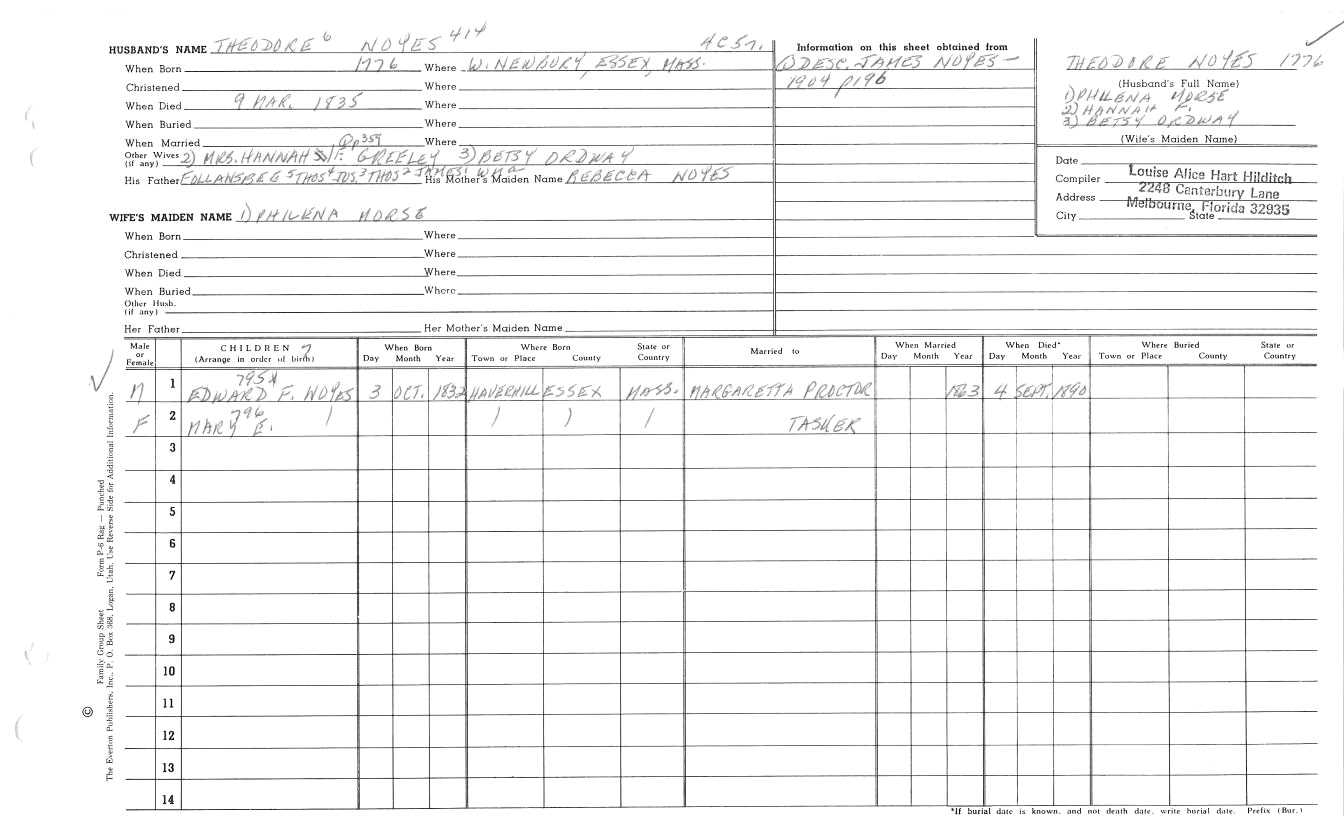 HUSBAND'S NAME THEODORE 6 NOYES 414
When Born 1776 Where W. NEWBURY, ESSEX, MASS.
Christened Where
When Died 9 MAR. 1835 Where
When Buried Where
When Married ① p359 Where
Other Wives (if any) 2) MRS. HANNAH F. GREELEY 3) BETSY ORDWAY
His Father 5 THOS 4 JUS. 3 THOS 2 JAMES 1 WM a His Mother's Maiden Name REBECCA NOYES
WIFE'S MAIDEN NAME 1) PHILENA MORSE
When Born Where
Christened Where
When Died Where
When Buried Where
Other Husb.
(if any)
Her Father Her Mother's Maiden Name
Information on this sheet obtained from
① DESC. JAMES NOYES —
1904 p196
THEODORE NOYES 1776
(Husband's Full Name)
1) PHILENA MORSE
2) HANNAH F.
3) BETSY ORDWAY
(Wife's Maiden Name)
Date
Compiler Louise Alice Hart Hilditch
Address 2248 Canterbury Lane
City Melbourne, Florida 32935 State
Male or Female CHILDREN 7 (Arrange in order of birth) When Born Day Month Year Where Born Town or Place County State or Country Married to When Married Day Month Year When Died* Day Month Year Where Buried Town or Place County State or Country
M 1 795X EDWARD F. NOYES 3 OCT. 1832 HAVERHILL ESSEX MASS. MARGARETTA PROCTOR 1863 4 SEPT. 1890
F 2 796 MARY E. TASKER
3
4
5
6
7
8
9
10
11
12
13
14
*If burial date is known, and not death date, write burial date. Prefix (Bur.)
Family Group Sheet Form P-6 Rag — Punched
© The Everton Publishers, Inc., P. O. Box 368, Logan, Utah, Use Reverse Side for Additional Information.